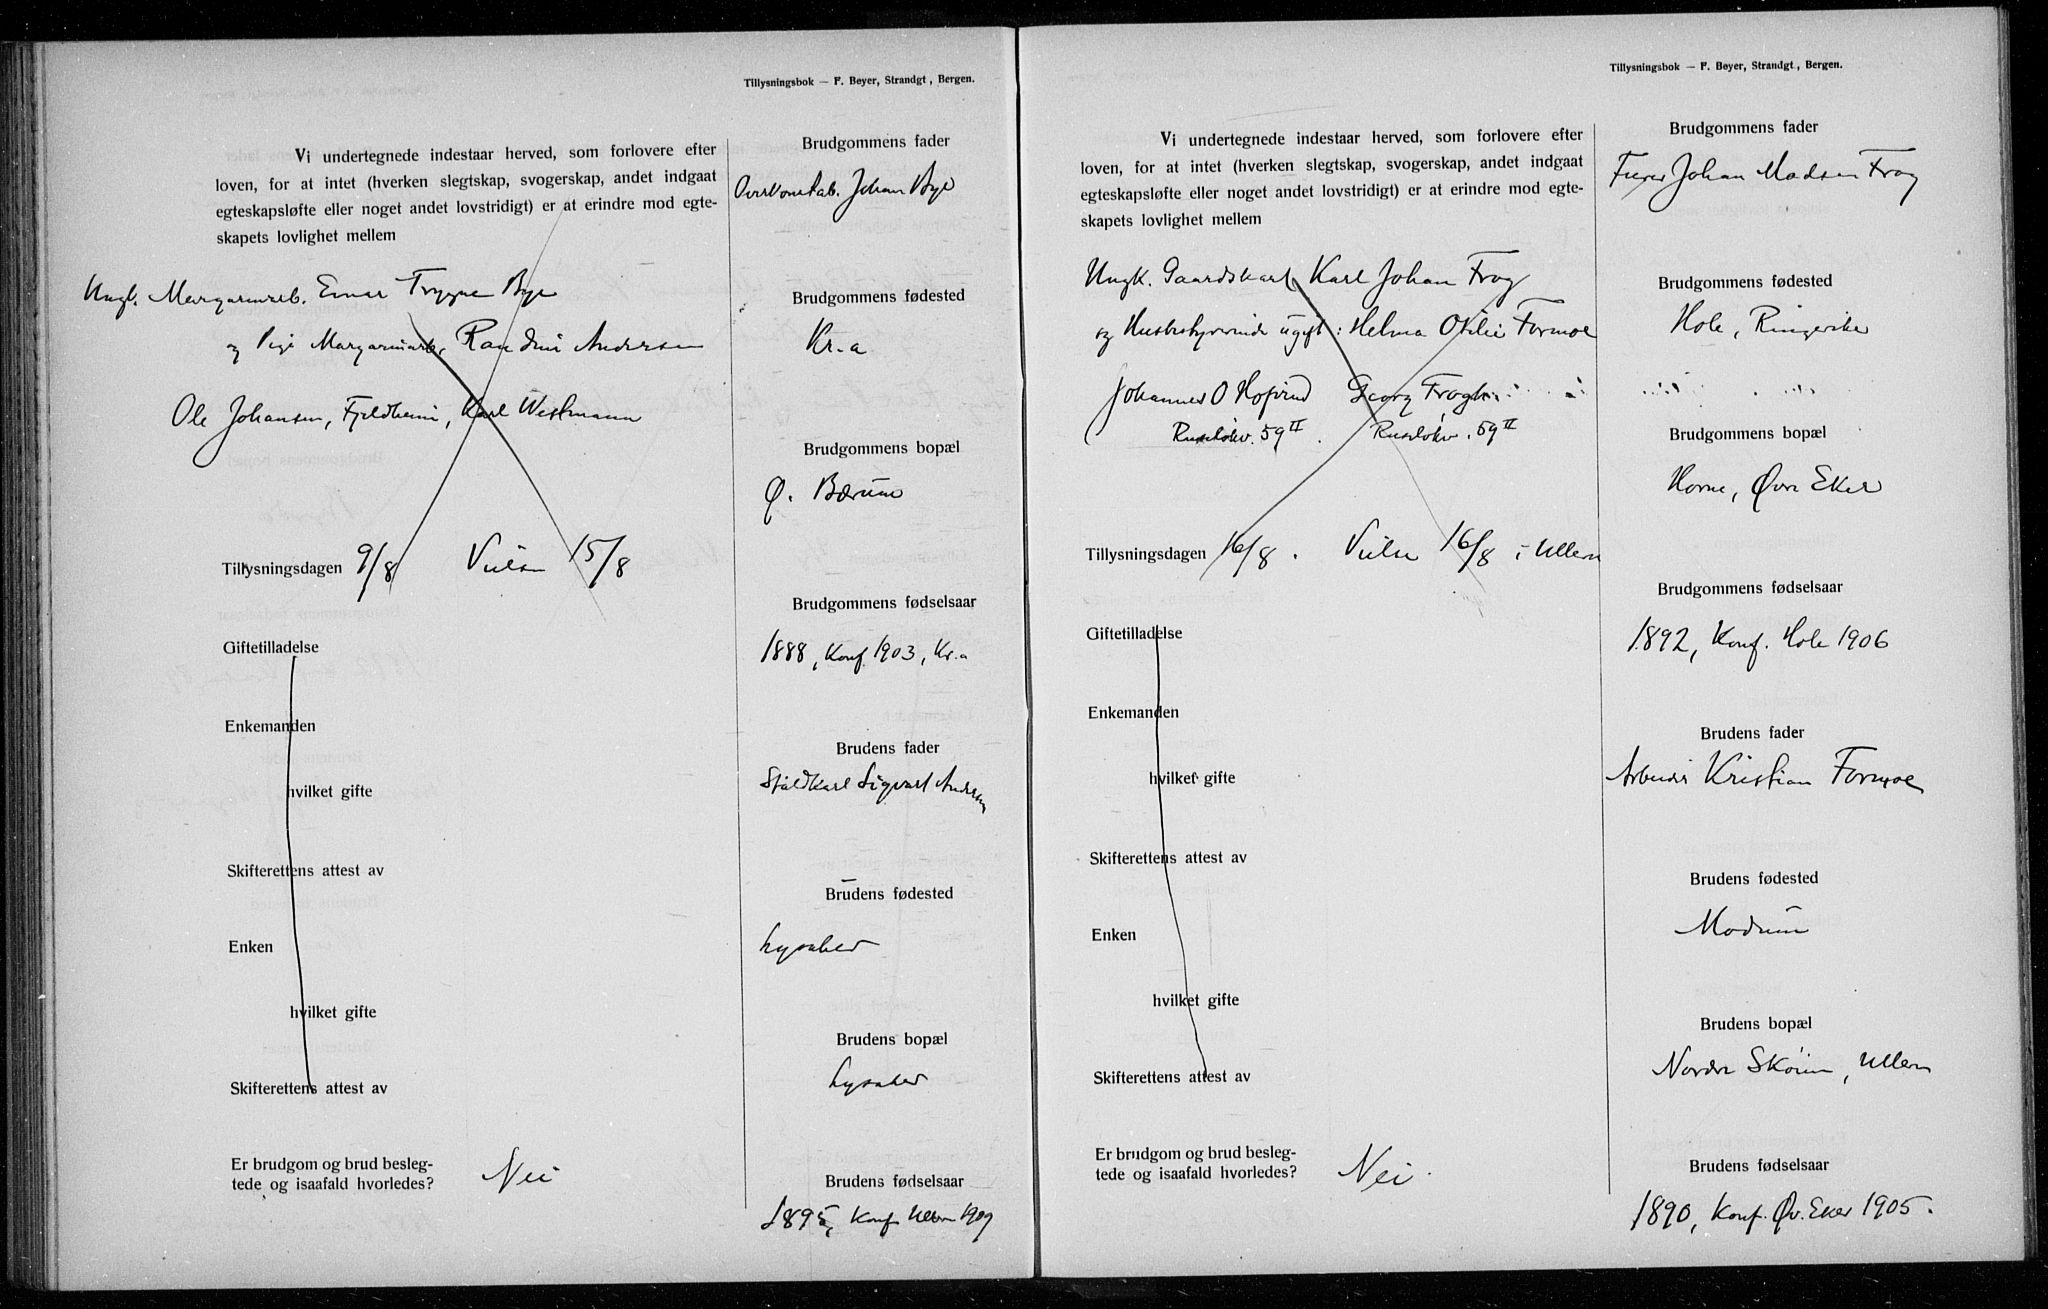 Tillysningsbok — F. Beyer, Strandgt, Bergen.
Vi undertegnede indestaar herved, som forlovere efter
loven, for at intet (hverken slegtskap, svogerskap, andet indgaat
egteskapsløfte eller noget andet lovstridigt) er at erindre mod egte-
skapets lovlighet mellem
Ungk. Margarinarb. Einar Trygve Bye
og Pige Margarinarb. Randine Andersen
Ole Johansen, Fjeldheim, Karl Westmann
Tillysningsdagen 9/8 Vielse 15/8
Giftetilladelse
Enkemanden
hvilket gifte
Skifterettens attest av
Enken
hvilket gifte
Skifterettens attest av
Er brudgom og brud besleg-
tede og isaafald hvorledes? Nei
Brudgommens fader
Overkonstab. Johan Bye
Brudgommens fødested
Kr.a
Brudgommens bopæl
Ø. Bærum
Brudgommens fødselsaar
1888, Konf. 1903, Kr.a
Brudens fader
Staldkarl Sigvart Andersen
Brudens fødested
Lysaker
Brudens bopæl
Lysaker
Brudens fødselsaar
1895, Konf. Ullern 1909
Tillysningsbok — F. Beyer, Strandgt., Bergen.
Vi undertegnede indestaar herved, som forlovere efter
loven, for at intet (hverken slegtskap, svogerskap, andet indgaat
egteskapsløfte eller noget andet lovstridigt) er at erindre mod egte-
skapets lovlighet mellem
Ungk. Gaardskarl Karl Johan Frog
og Husbestyrerinde ugift: Helma Otilie Formoe
Johannes O Hofsrud Georg Frogh
Ruseløkv. 59 II. Ruseløkv. 59 II
Tillysningsdagen 16/8. Vielse 16/8 i Ullern
Giftetilladelse
Enkemanden
hvilket gifte
Skifterettens attest av
Enken
hvilket gifte
Skifterettens attest av
Er brudgom og brud besleg-
tede og isaafald hvorledes? Nei.
Brudgommens fader
Johan Madsen Frog
Brudgommens fødested
Hole, Ringerike
Brudgommens bopæl
Horne, Øvre Eker
Brudgommens fødselsaar
1892, Konf. Hole 1906
Brudens fader
Arbeider Kristian Formoe
Brudens fødested
Modum
Brudens bopæl
Nordre Skøien, Ullern
Brudens fødselsaar
1890, Konf. Øv. Eker 1905.